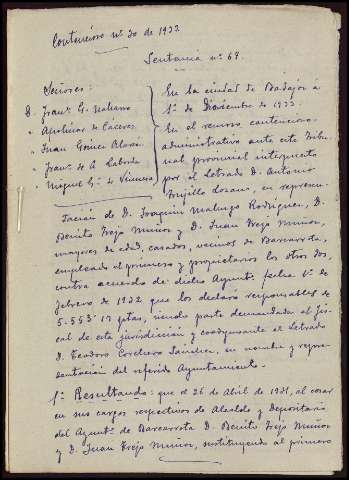 Contencioso nº 30 de 1932
Sentencia nº 69.
Señores:
D. Franco G. Naharro
" Apolinar de Cáceres
" Juan Gómez
" Franco de A. Laborda
" Miguel Gª de Vinuesa
En la ciudad de Badajoz á
1º de Diciembre de 1933.
En el recurso contencioso
administrativo ante este Tribu
nal provincial interpuesto
por el Letrado D. Antonio
Trujillo Lozano, en represen
tación de D. Joaquín Rodríguez, D.
Benito Trejo Muñoz y D. Juan Trejo Muñoz,
mayores de edad, casados, vecinos de Barcarrota,
empleado el primero y propietarios los otros dos,
contra acuerdo de dicho Ayuntº fecha 1º de
febrero de 1932 que los declaró responsables de
5.553'17 ptas, siendo parte demandada el Fis
cal de esta jurisdicción y coadyuvante el Letrado
D. Teodoro Corchero Sánchez, en nombre y repre-
sentación del referido Ayuntamiento.
1º Resultando: que el 26 de Abril de 1931, al cesar
en sus cargos respectivos de Alcalde y Depositario
del Ayuntº de Barcarrota D. Benito Trejo Muñoz
y D. Juan Trejo Muñoz, sustituyendo al primero